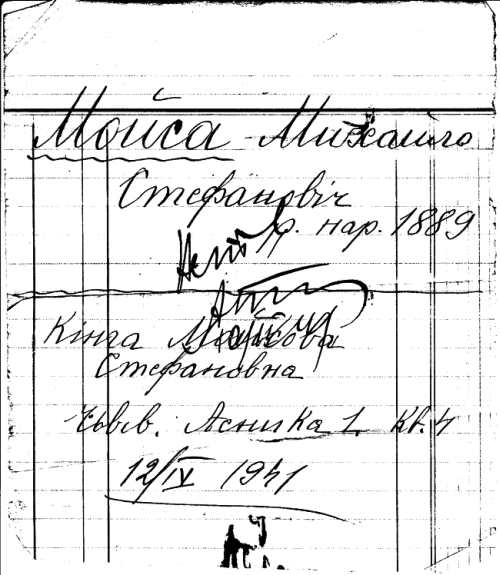 Мойса Михайло
Стефановіч
р. нар. 1889
Кінга
Стефановна
Львів. Асника 1. кв. 4
12/IV 1941